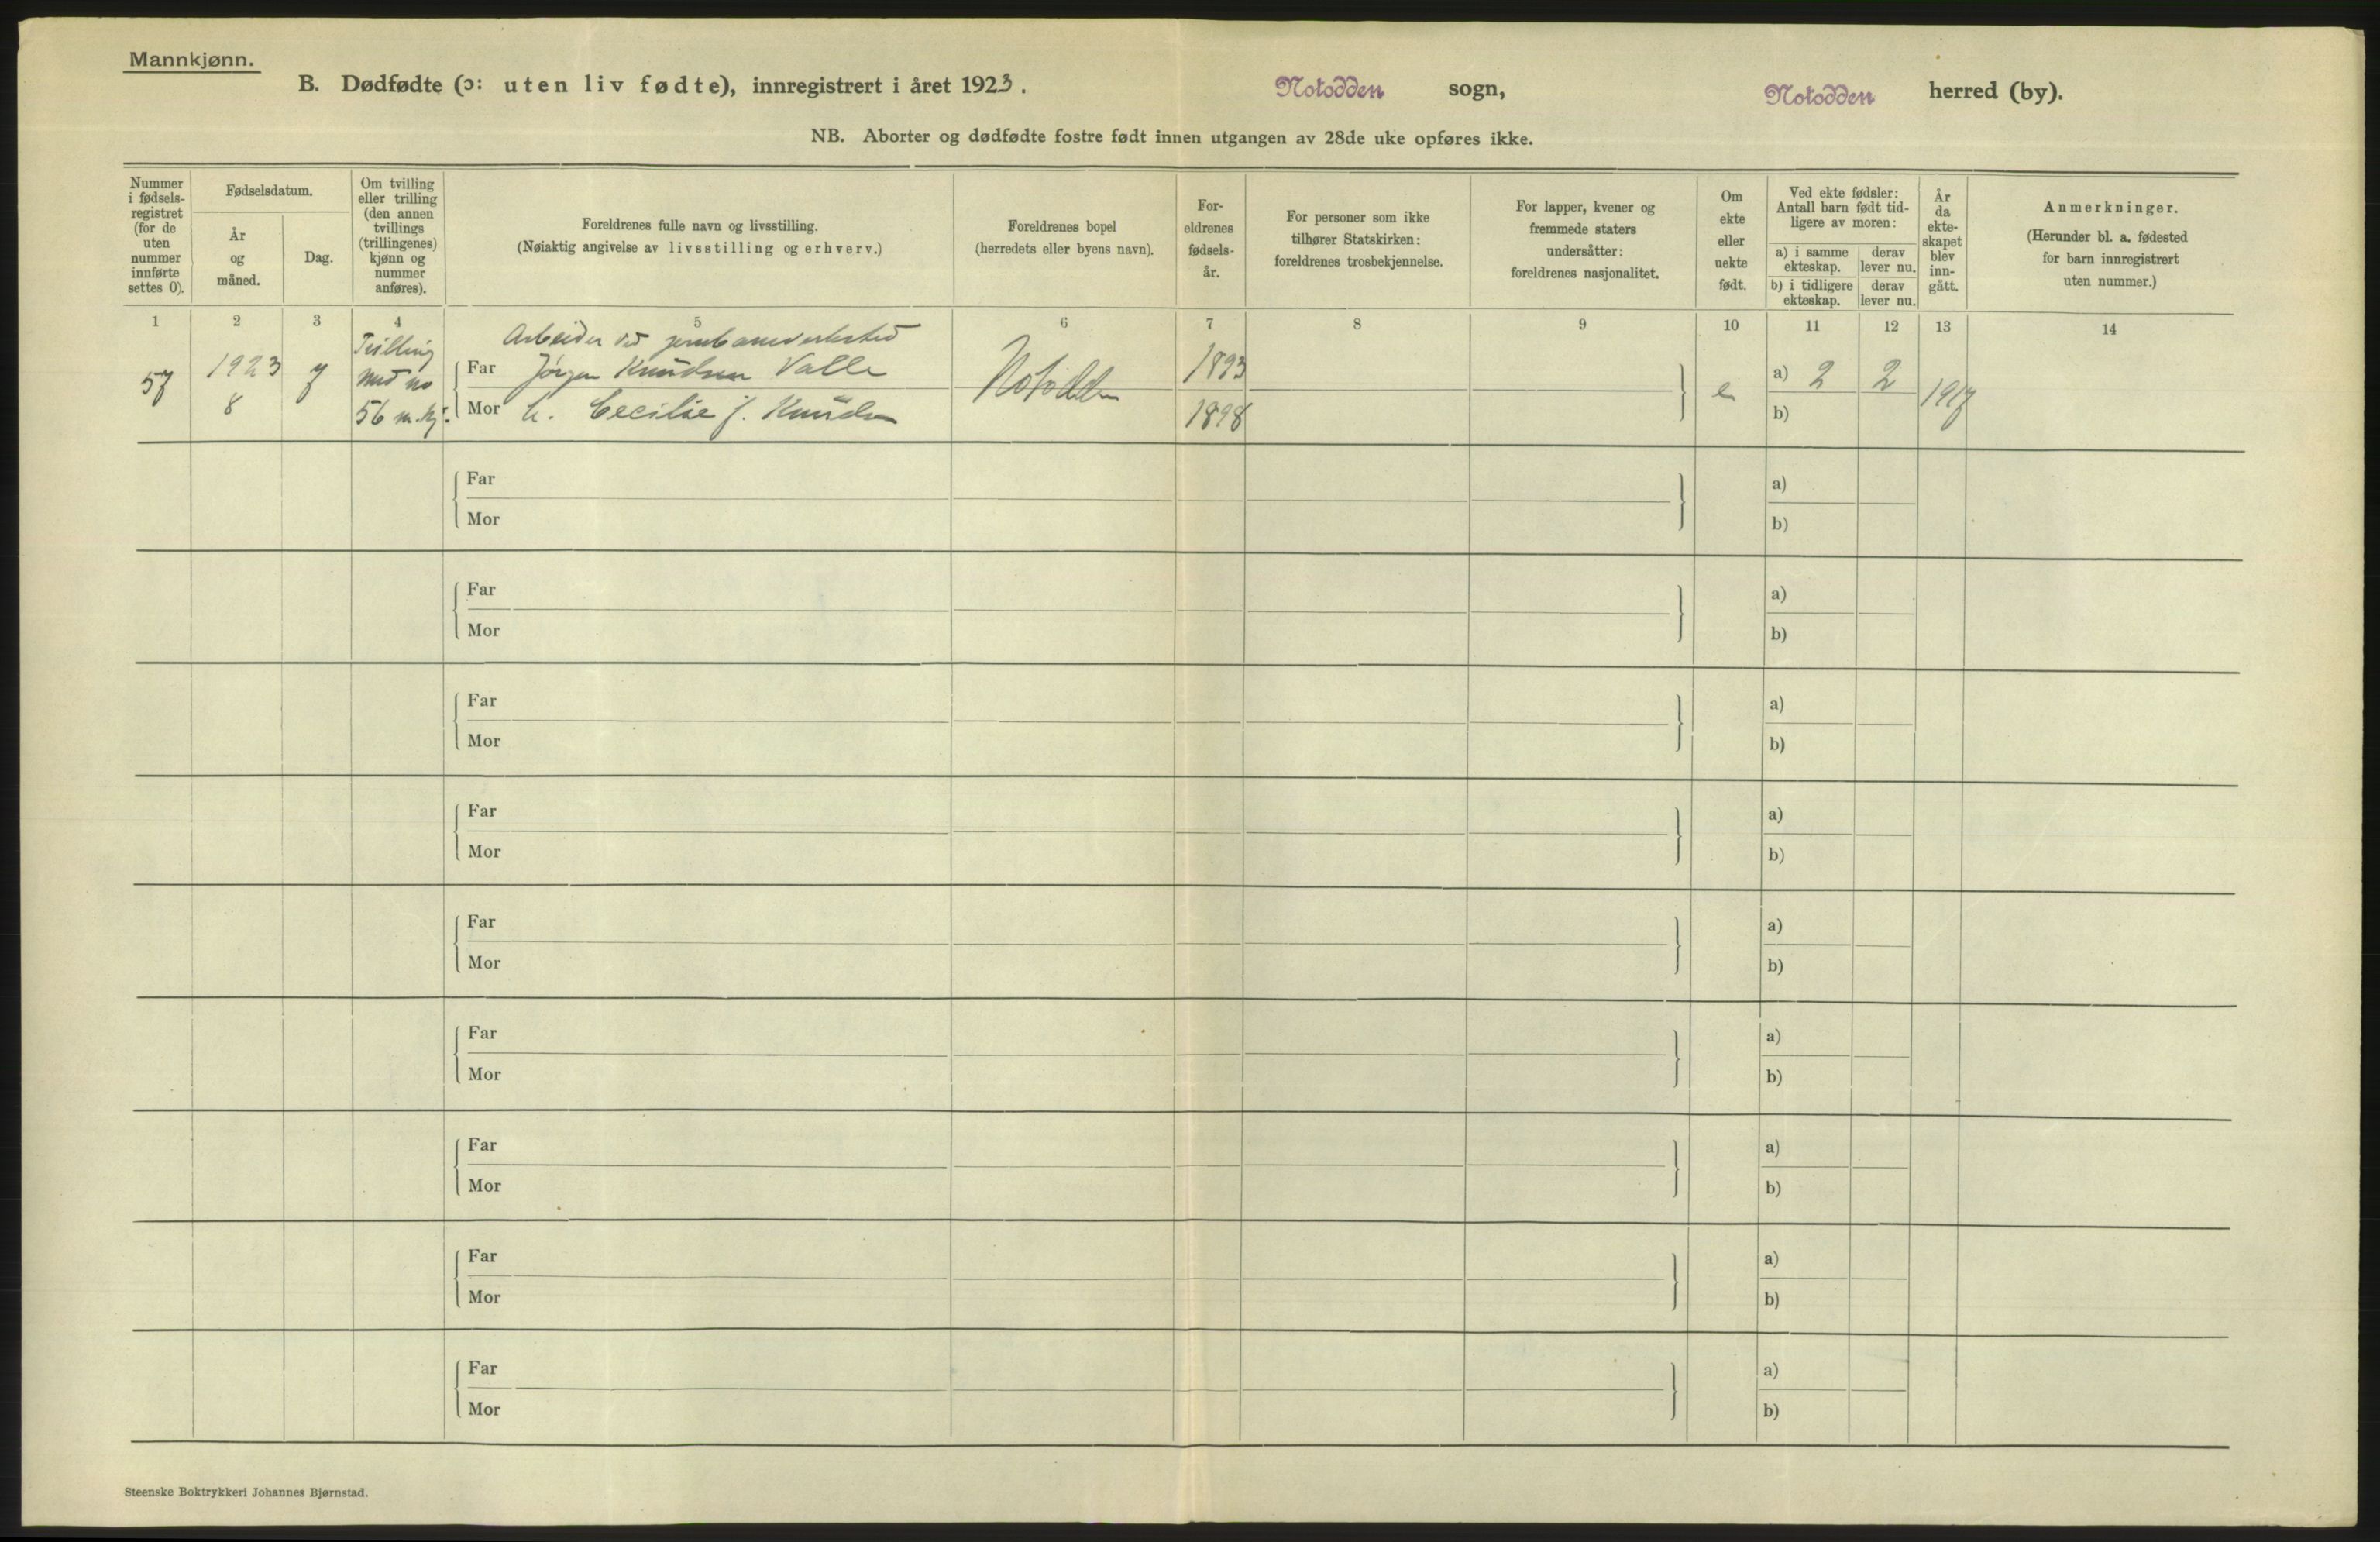 Mannkjønn.
B. Dødfødte (ɔ: uten liv fødte), innregistrert i året 1923. Notodden sogn, Notodden herred (by).
NB. Aborter og dødfødte fostre født innen utgangen av 28de uke opføres ikke.
Nummer
i fødsels-
registret
(for de
uten
nummer
innførte
settes 0).
Fødselsdatum.
År
og
måned.
Dag.
Om tvilling
eller trilling
(den annen
tvillings
(trillingenes)
kjønn og
nummer
anføres).
Foreldrenes fulle navn og livsstilling.
(Nøiaktig angivelse av livsstilling og erhverv.)
Foreldrenes bopel
(herredets eller byens navn).
For-
eldrenes
fødsels-
år.
For personer som ikke
tilhører Statskirken:
foreldrenes trosbekjennelse.
For lapper, kvener og
fremmede staters
undersåtter:
foreldrenes nasjonalitet.
Om
ekte
eller
uekte
født.
Ved ekte fødsler:
Antall barn født tid-
ligere av moren:
a) i samme
ekteskap.
derav
lever nu.
b) i tidligere
ekteskap.
derav
lever nu.
År
da
ekte-
skapet
blev
inn-
gått.
Anmerkninger.
(Herunder bl. a. fødested
for barn innregistrert
uten nummer.)
1 2 3 4 5 6 7 8 9 10 11 12 13 14
57
1923
8
7
Tvilling
med no
56 m.kj.
Arbeider ved jernbaneverksted
Far Jørgen Knudsen Valle
Mor h. Cecilie f. Knudsen
Notodden
1893
1898
e
a) 2 2
b)
1917
Far
Mor
a)
b)
Far
Mor
a)
b)
Far
Mor
a)
b)
Far
Mor
a)
b)
Far
Mor
a)
b)
Far
Mor
a)
b)
Far
Mor
a)
b)
Far
Mor
a)
b)
Far
Mor
a)
b)
Steenske Boktrykkeri Johannes Bjørnstad.